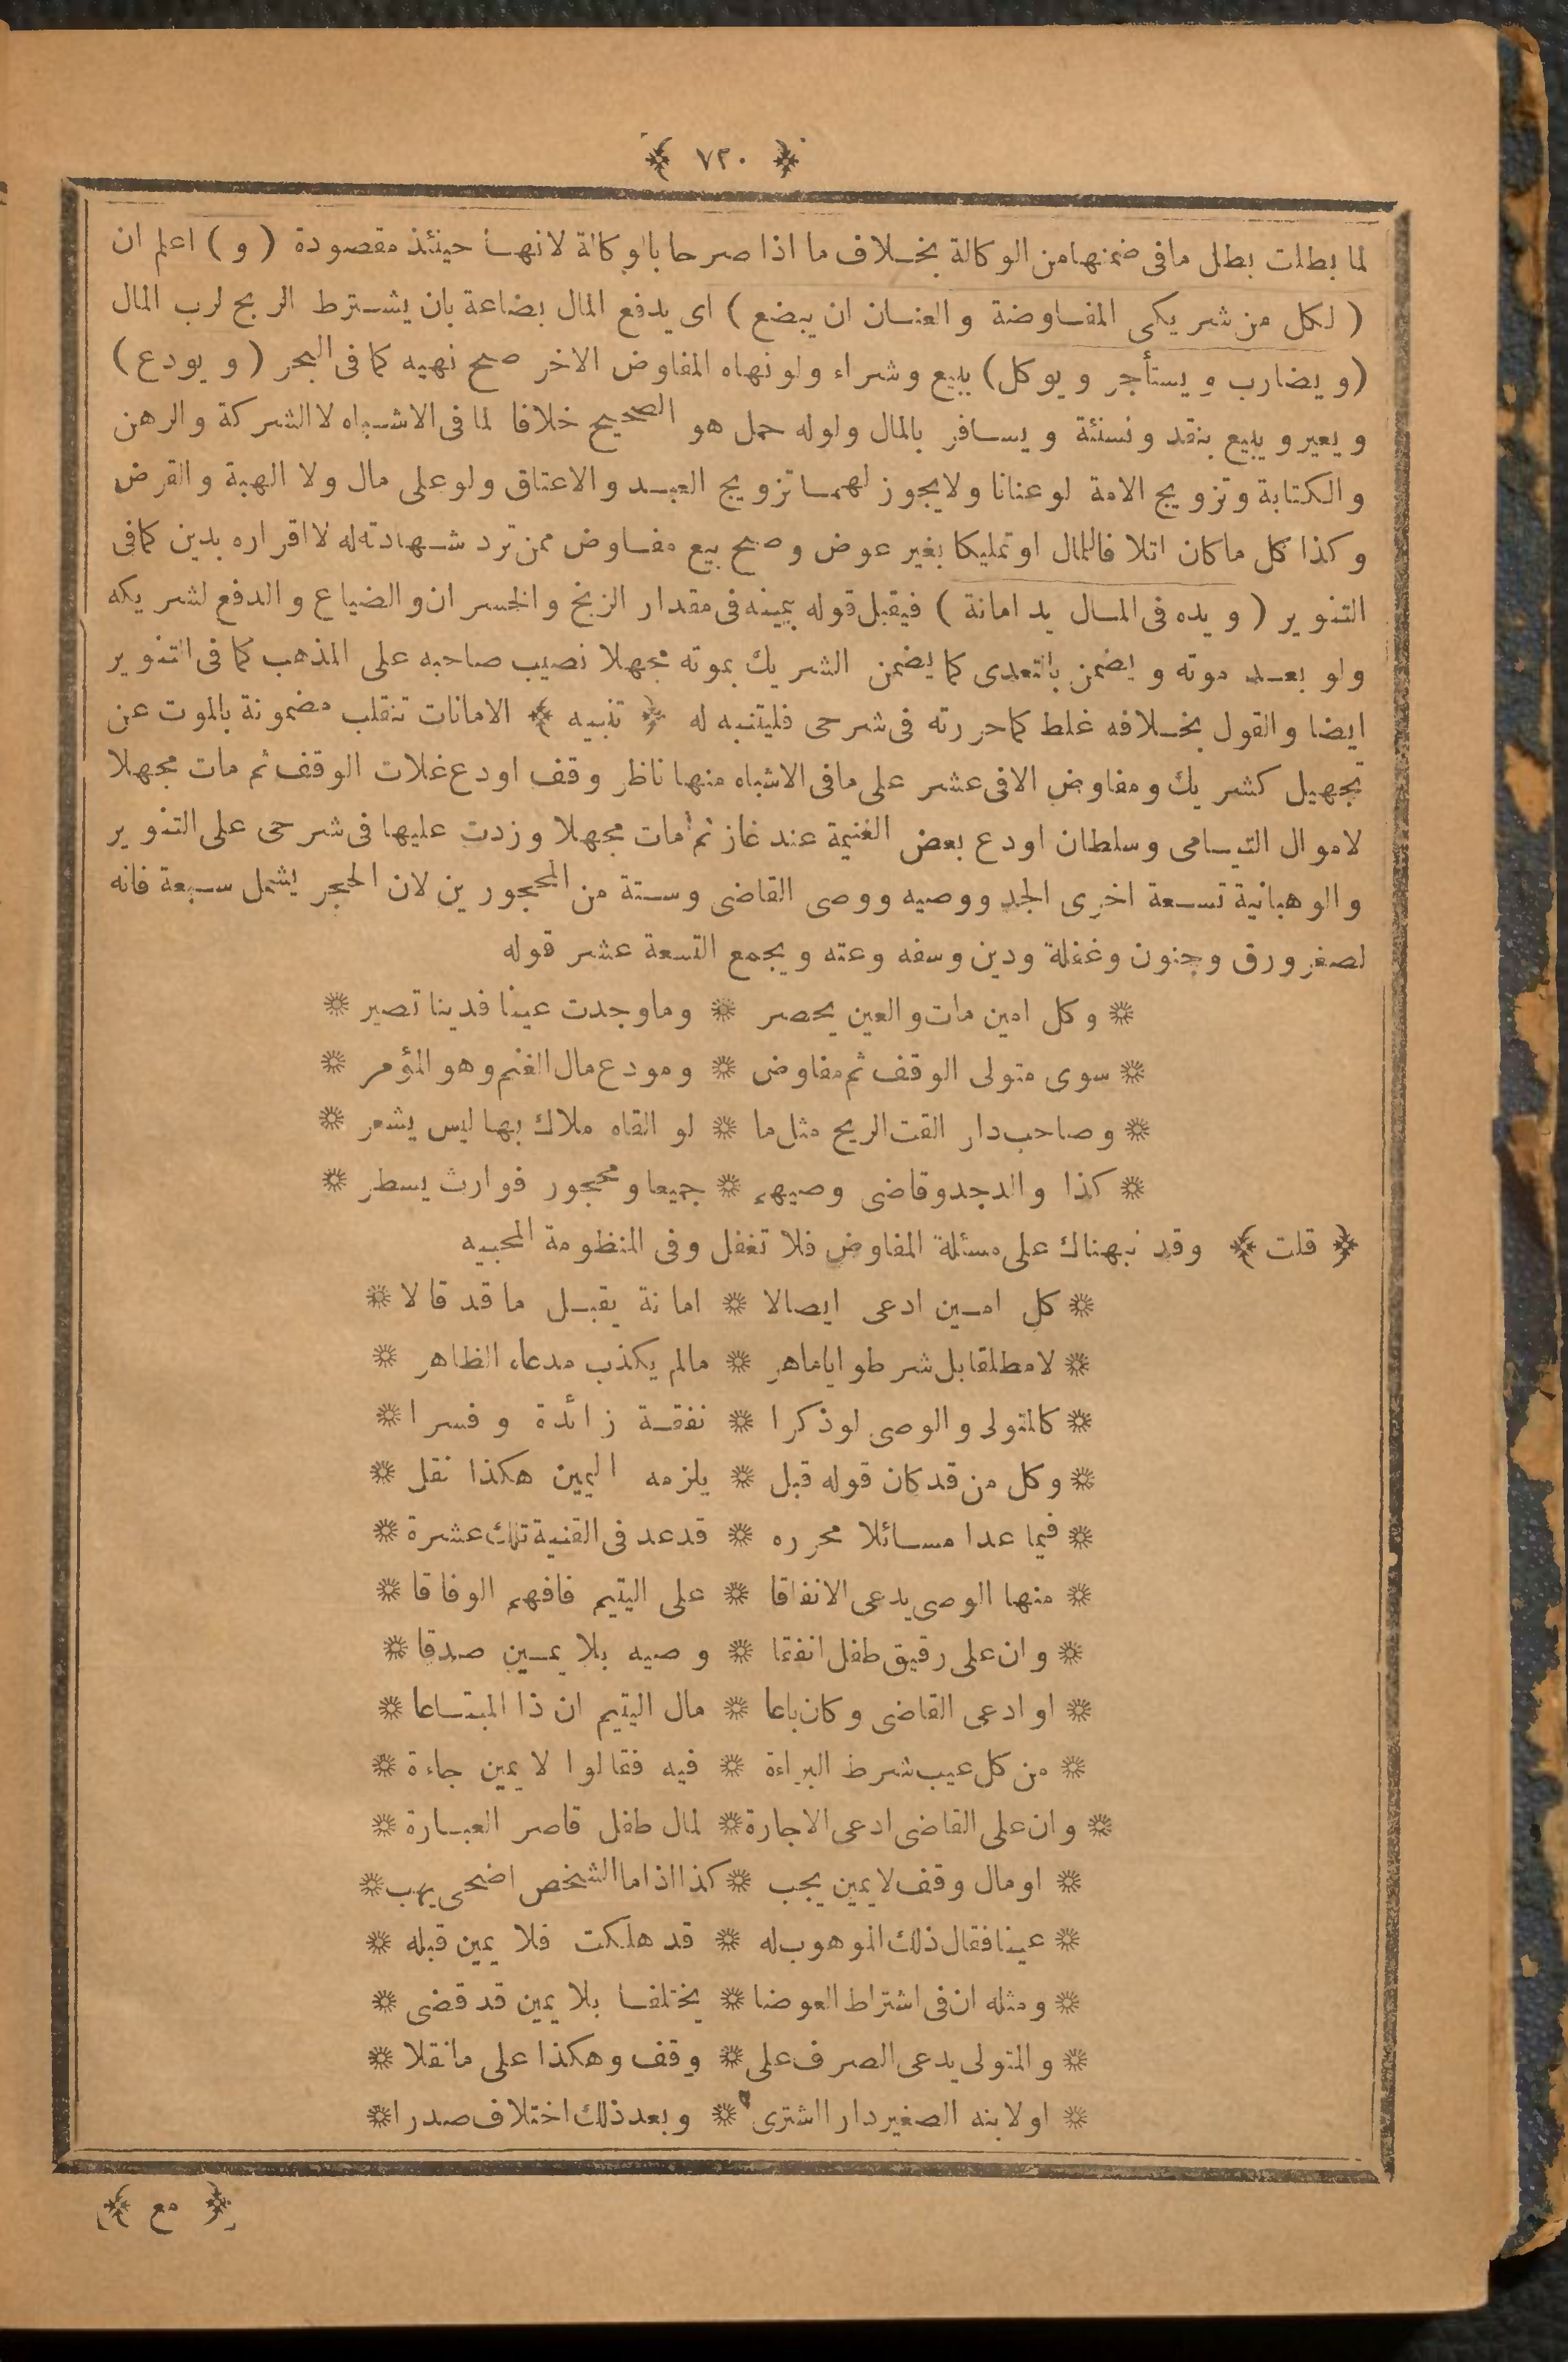 ﴿ ٧٢٠ ﴾
لما بطلت بطل مافى ضمنها من الوكالة بخلاف ما اذا صرحا بالوكالة لانها حينئذ مقصودة ( و ) اعلم ان
( لكل من شريكى المفاوضة والعنان ان يبضع ) اى يدفع المال بضاعة بان يشترط الربح لرب المال
( ويضارب ويستأجر ويوكل ) ببيع وشراء ولو نهاه المفاوض الاخر صح نهيه كما فى البحر ( ويودع )
ويعير ويبيع بنقد ونسئة ويسافر بالمال ولوله حمل هو الصحيح خلافا لما فى الاشباه لا الشركة والرهن
والكتابة وتزويج الامة لو عنانا ولايجوز لهما تزويج العبد والاعتاق ولو على مال ولا الهبة والقرض
وكذا كل ماكان اتلافا للمال او تمليكا بغير عوض وصح بيع مفاوض ممن ترد شهادته له لا اقراره بدين كمافى
التنوير ( ويده فى المال يد امانة ) فيقبل قوله بيمينه فى مقدار الربح والخسران والضياع والدفع لشريكه
ولو بعد موته ويضمن بالتعدى كما يضمن الشريك بموته مجهلا نصيب صاحبه على المذهب كما فى التنوير
ايضا والقول بخلافه غلط كما حررته فى شرحى فليتنبه له ﴿ تنبيه ﴾ الامانات تنقلب مضمونة بالموت عن
تجهيل كشريك ومفاوض الافى عشر على مافى الاشباه منها ناظر وقف اودع غلات الوقف ثم مات مجهلا
لاموال اليتامى وسلطان اودع بعض الغنيمة عند غاز ثم مات مجهلا وزدت عليها فى شرحى على التنوير
والوهبانية تسعة اخرى الجد ووصيه ووصى القاضى وستة من المحجورين لان الحجر يشمل سبعة فانه
لصغر ورق وجنون وغفلة ودين وسفه وعته ويجمع التسعة عشر قوله
❊ وكل امين مات والعين يحصر ❊ وماوجدت عينا فدينا تصير ❊
❊ سوى متولى الوقف ثم مفاوض ❊ ومودع مال الغنم وهو المؤمر ❊
❊ وصاحب دار القت الريح مثل ما ❊ لو القاه ملاك بها ليس يشعر ❊
❊ كذا والد جد وقاضى وصيهم ❊ جميعا ومحجور فوارث يسطر ❊
﴿ قلت ﴾ وقد نبهناك على مسئلة المفاوض فلا تغفل وفى المنظومة المحبيه
❊ كل امين ادعى ايصالا ❊ امانة يقبل ما قد قالا ❊
❊ لا مطلقا بل شرطوا ياماهر ❊ مالم يكذب مدعاه الظاهر ❊
❊ كالمتولى والوصى لو ذكرا ❊ نفقة زائدة وفسرا ❊
❊ وكل من قد كان قوله قبل ❊ يلزمه اليمين هكذا نقل ❊
❊ فيما عدا مسائلا محرره ❊ قد عد فى القنية تلك عشرة ❊
❊ منها الوصى يدعى الانفاقا ❊ على اليتيم فافهم الوفاقا ❊
❊ وان على رقيق طفل انفقا ❊ وصيه بلا يمين صدقا ❊
❊ او ادعى القاضى وكان باعا ❊ مال اليتيم ان ذا المبتاعا ❊
❊ من كل عيب شرط البراءة ❊ فيه فقالوا لا يمين جاءة ❊
❊ وان على القاضى ادعى الاجارة ❊ لمال طفل قاصر العبارة ❊
❊ او مال وقف لا يمين يجب ❊ كذا اذا ما الشخص اضحى يهب ❊
❊ عينا فقال ذلك الموهوب له ❊ قد هلكت فلا يمين قبله ❊
❊ ومثله ان فى اشتراط العوضا ❊ يختلفا بلا يمين قد قضى ❊
❊ والمتولى يدعى الصرف على ❊ وقف وهكذا على مانقلا ❊
❊ او لابنه الصغير دارا اشترى ❊ وبعد ذلك اختلاف صدرا ❊
﴿ مع ﴾